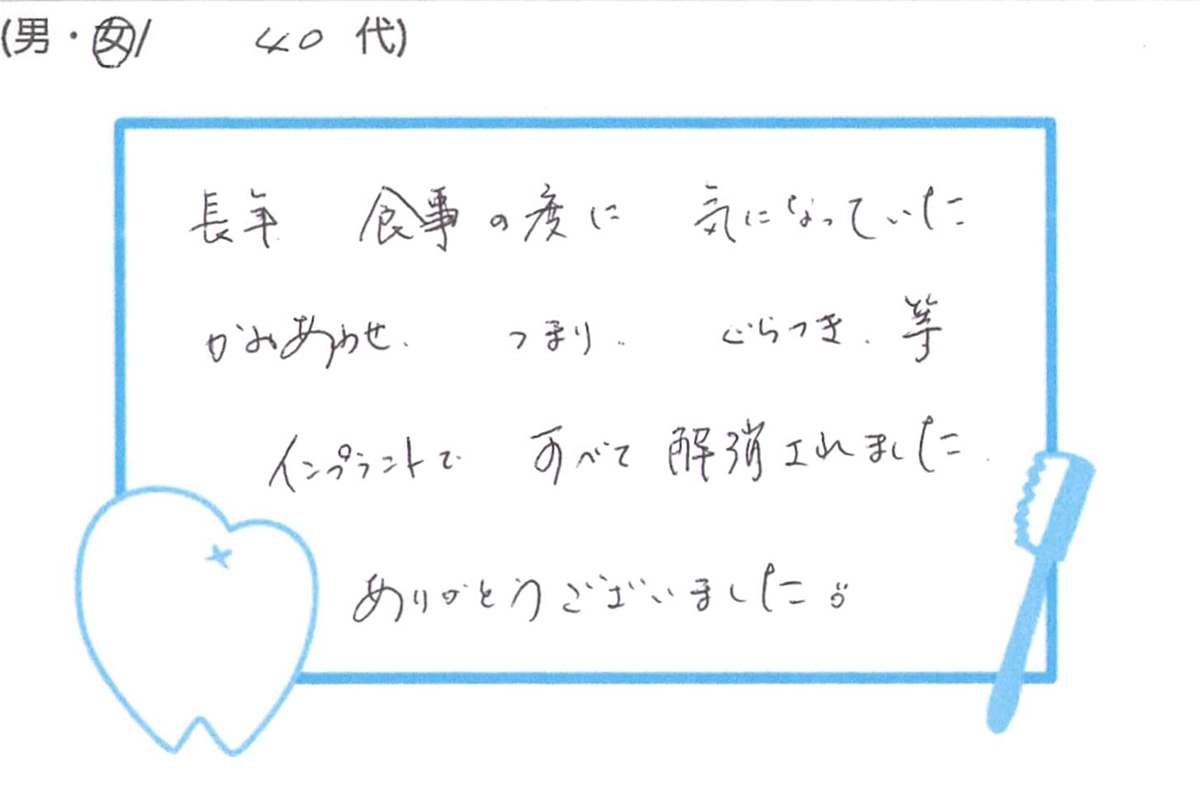 (男・女/ 40 代)
長年 食事の度に 気になっていた
かみあわせ. つまり. ぐらつき. 等
インプラントで すべて 解消されました.
ありがとうございました。